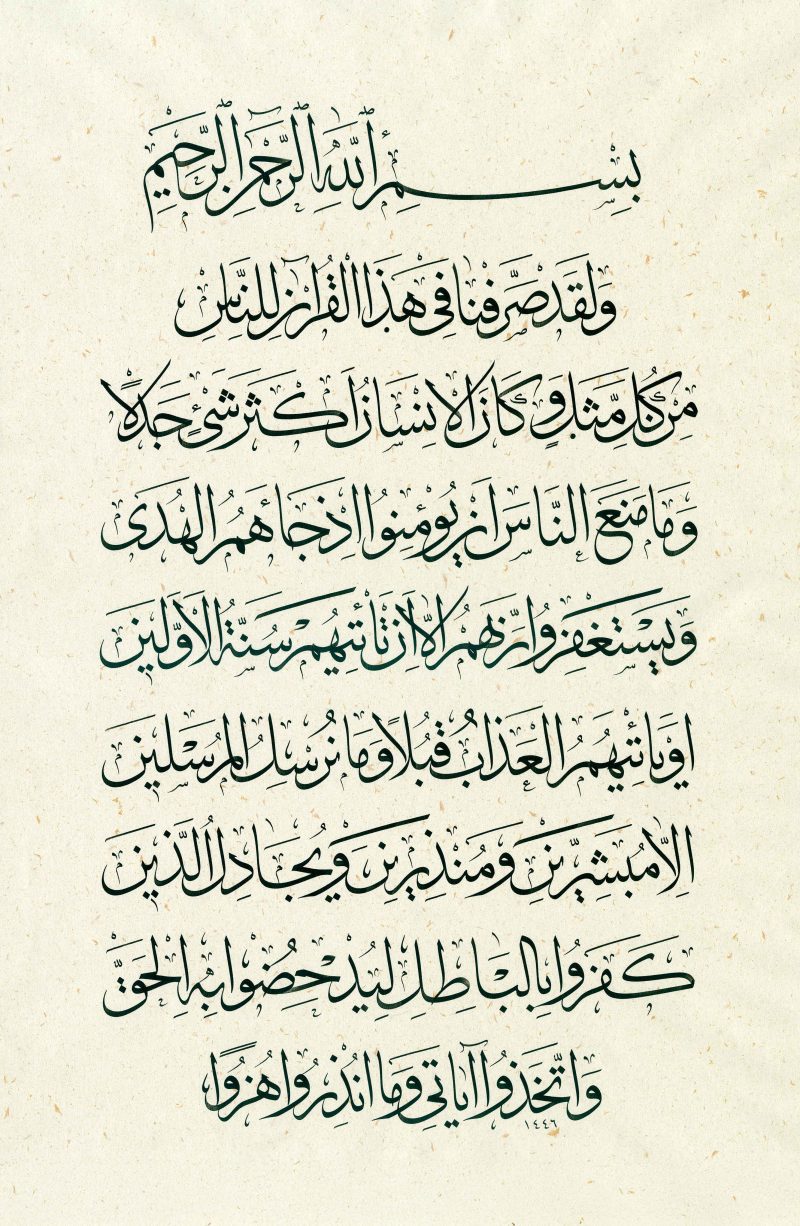 بِسْمِ ٱللّٰهِ الرَّحْمٰنِ الرَّحِيْمِ
وَلَقَدْ صَرَّفْنَا فِي هٰذَا الْقُرْآنِ لِلنَّاسِ
مِنْ كُلِّ مَثَلٍ وَكَانَ الْاِنْسَانُ اَكْثَرَ شَيْءٍ جَدَلًا
وَمَا مَنَعَ النَّاسَ اَنْ يُؤْمِنُوا اِذْ جَاءَهُمُ الْهُدٰى
وَيَسْتَغْفِرُوا رَبَّهُمْ اِلَّا اَنْ تَأْتِيَهُمْ سُنَّةُ الْاَوَّلِيْنَ
اَوْ يَأْتِيَهُمُ الْعَذَابُ قُبُلًا وَمَا نُرْسِلُ الْمُرْسَلِيْنَ
اِلَّا مُبَشِّرِيْنَ وَمُنْذِرِيْنَ وَيُجَادِلُ الَّذِيْنَ
كَفَرُوا بِالْبَاطِلِ لِيُدْحِضُوا بِهِ الْحَقَّ
وَاتَّخَذُوا آيَاتِي وَمَا اُنْذِرُوا هُزُوًا
١٤٤٦